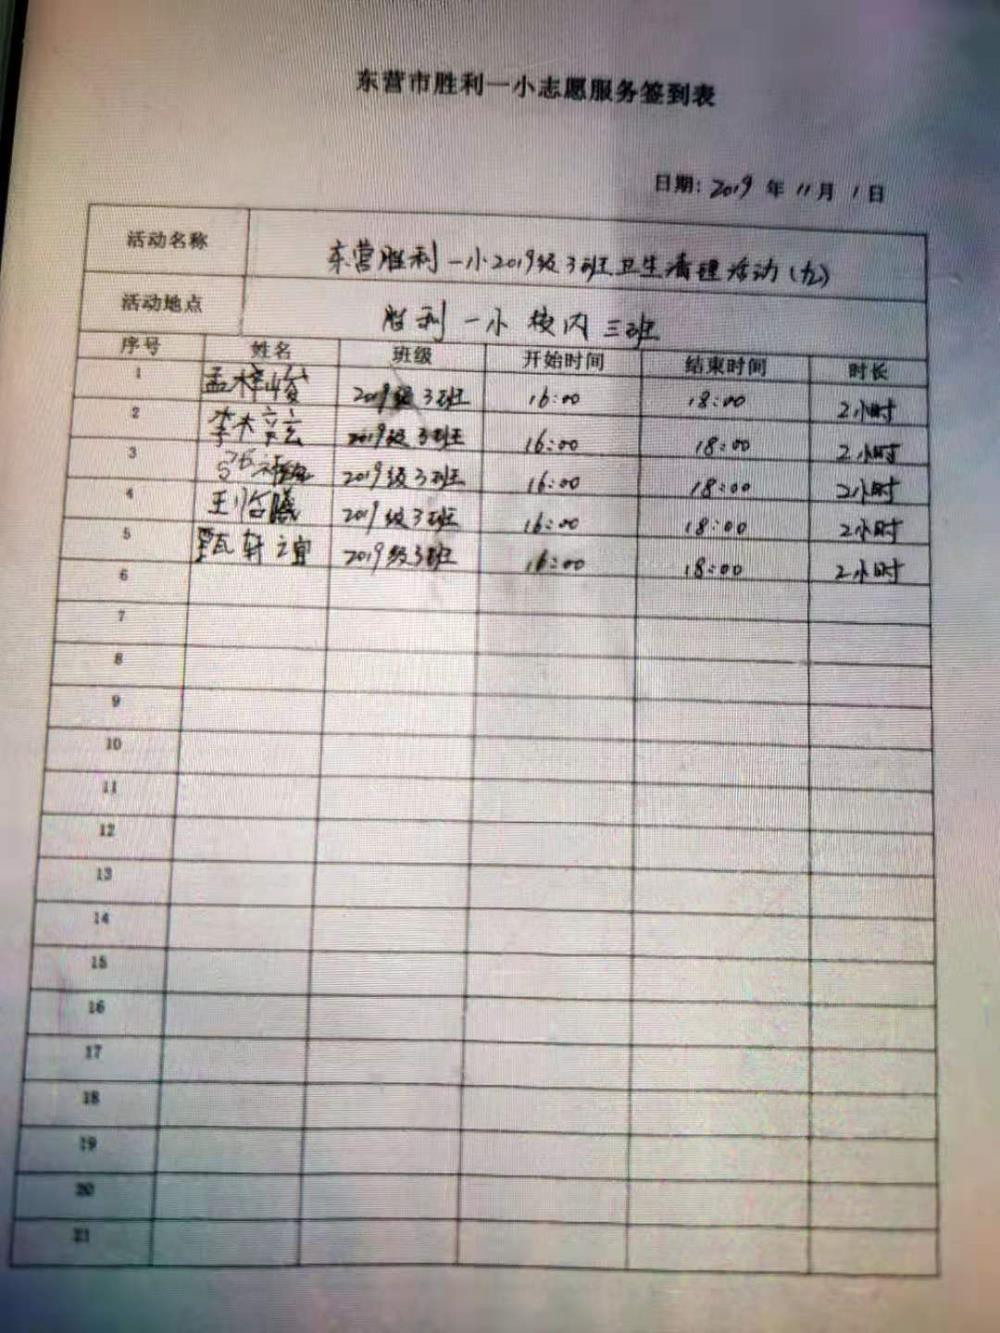 东营市胜利一小志愿服务签到表
日期: 2019 年 11 月 1 日
活动名称 东营胜利一小2019级3班卫生清理活动(九)
活动地点 胜利一小校内三班
序号 姓名 班级 开始时间 结束时间 时长
1 孟梓峻 2019级3班 16:00 18:00 2小时
2 李 2019级3班 16:00 18:00 2小时
3 2019级3班 16:00 18:00 2小时
4 王 曦 2019级3班 16:00 18:00 2小时
5 甄轩谊 2019级3班 16:00 18:00 2小时
6
7
8
9
10
11
12
13
14
15
16
17
18
19
20
21